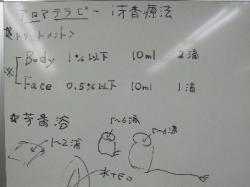 アロアテラピー 芳香療法
<トリートメント>
※ Body 1%以下 10ml 2滴
Face 0.5%以下 10ml 1滴
☆芳香浴
5~6滴 5~6滴
1~2滴
水+EO